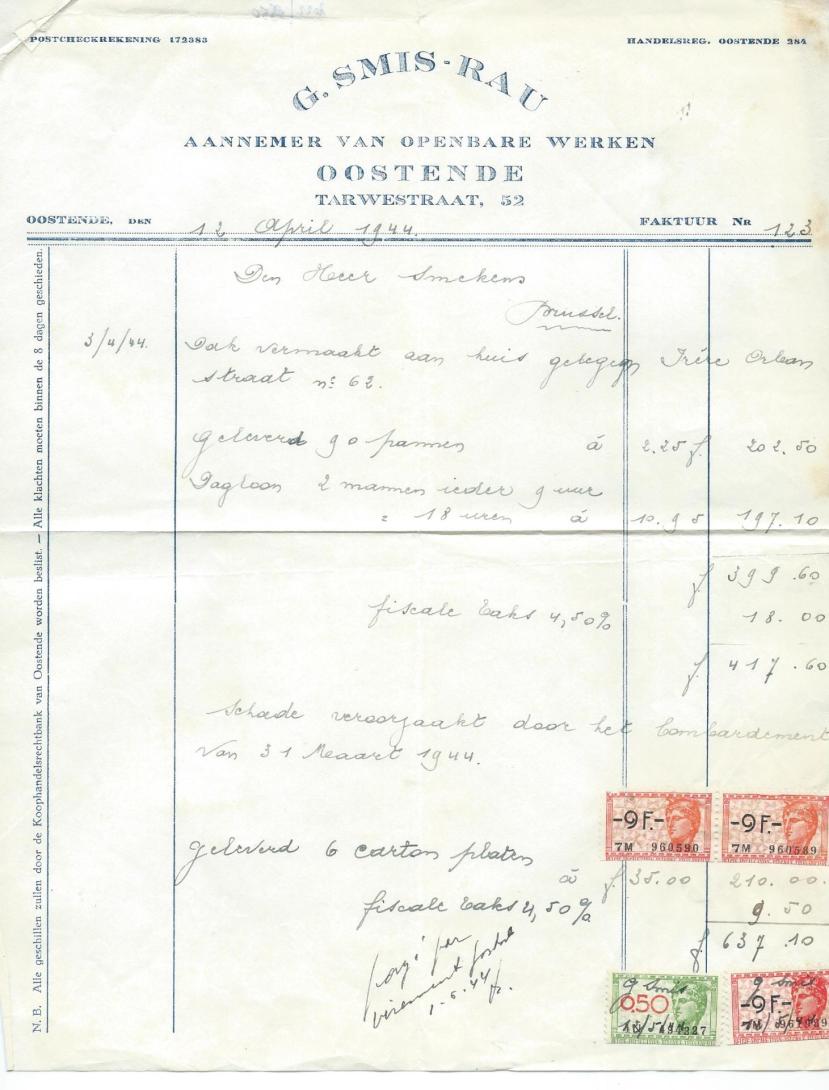 POSTCHECKREKENING 172383
HANDELSREG. OOSTENDE 284
G. SMIS-RAU
AANNEMER VAN OPENBARE WERKEN
OOSTENDE
TARWESTRAAT, 52
OOSTENDE, DEN 12 April 1944.
FAKTUUR Nr 123
N. B. Alle geschillen zullen door de Koophandelsrechtbank van Oostende worden beslist. — Alle klachten moeten binnen de 8 dagen geschieden.
Den Heer Smekens
Brussel.
3/4/44. Dak vermaakt aan huis gelegen Frére Orban
straat nº 62.
geleverd 90 pannen á 2.25 f. 202.50
Dagloon 2 mannen ieder 9 uur
= 18 uren á 10.95 197.10
f 399.60
fiscale taks 4,50% 18.00
f. 417.60
Schade veroorzaakt door het bombardement
van 31 Maart 1944.
-9F.- -9F.-
7M 960590 7M 960589
geleverd 6 carton platen
á f. 35.00 210.00.
fiscale taks 4,50% 9.50
f. 637.10
payé par
virement postal
1.6.44
G Smis G Smis
0,50 -9F.-